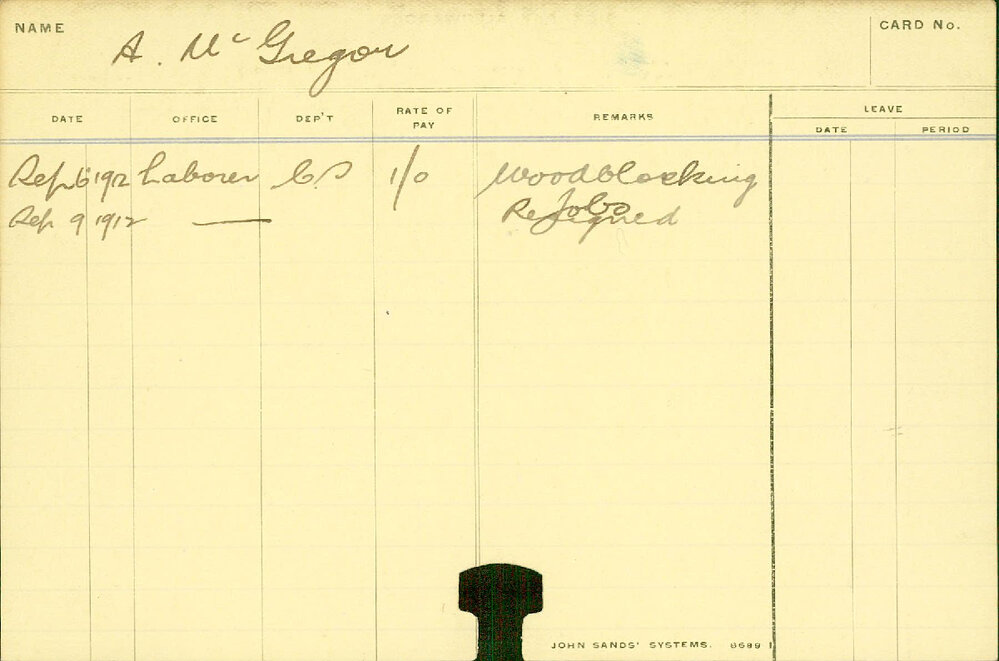 NAME A. McGregor CARD No.
DATE OFFICE DEP'T RATE OF PAY REMARKS LEAVE
DATE PERIOD
Sep 6 1912 Laborer C.S 1/0 Woodblocking
Jobs
Sep 9 1912 — Resigned
JOHN SANDS' SYSTEMS. 6699